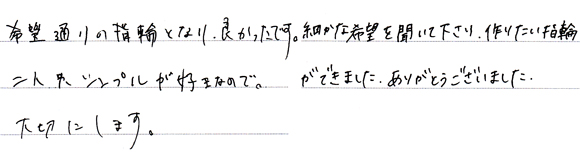 希望通りの指輪となり、良かったです。細かな希望を聞いて下さり、作りたい指輪
二人共シンプルが好きなので。 ができました。ありがとうございました。
大切にします。